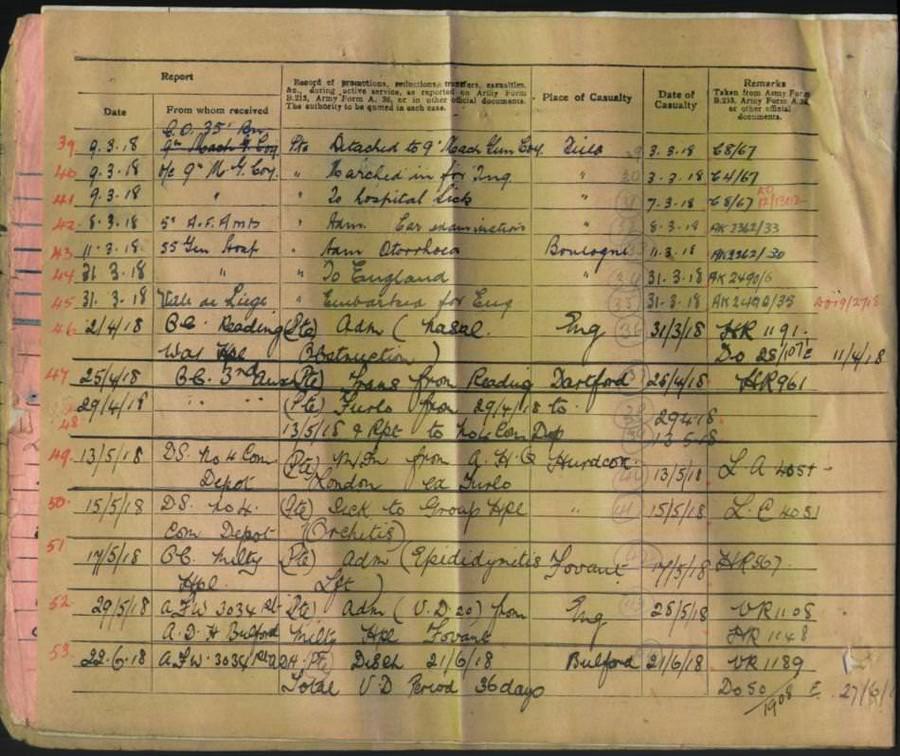 Report
Record of promotions, reductions, transfers, casualties,
&c., during active service, as reported on Army Form
B.213, Army Form A. 36, or in other official documents.
The authority to be quoted in each case.
Place of Casualty
Date of
Casualty
Remarks
Taken from Army Form
B.213, Army Form A.36
or other official
documents.
Date
From whom received
C.O. 35' Bn
39 9.3.18 9th Mach G Coy Pte Detached to 9' Mach Gun Coy. Field 3.3.18 C8/67
40 9.3.18 o/c 9th M.G. Coy. " Marched in for Tng " 3.3.18 C4/67
41 9.3.18 " " To hospital Sick " 7.3.18 C8/67
42 8.3.18 5' A.F. Amb " Adm. Ear examination " 8.3.18 AK2362/33
43 11.3.18 55 Gen Hosp " Adm Otorrhoea Boulogne 11.3.18 AK2362/30
44 31.3.18 " " To England " 31.3.18 AK2490/6
45 31.3.18 Ville de Liege " Embarked for Eng 31.3.18 AK2490/35
46 2/4/18 O.C. Reading (Pte) Adm (Nasal Eng 31/3/18 HR 1191
War Hpl Obstruction) Do 28/107 E 11/4/18
47 25/4/18 O.C. 3rd Aux (Pte) Trans from Reading Dartford 25/4/18 HR961
48 29/4/18 " " " (Pte) Furlo from 29/4/18 to 29.4.18
13/5/18 & Rpt to No 4 Com Dep 13.5.18
49 13/5/18 DS. No 4 Com (Pte) M/In from A.H.Q Hurdcott 13/5/18 L.A 4051
Depot London ex Furlo
50 15/5/18 DS. No 4. (Pte) Sick to Group Hpl " 15/5/18 L.C 4051
Com Depot (Orchitis)
51 17/5/18 O.C. Milty (Pte) Adm (Epididymitis Fovant 17/5/18 HR867
Hpl Lft)
52 29/5/18 A.F.W 3034 Pte) Adm (V.D.20) from Eng 28/5/18 VR1108
A.D.H Bulford Milty Hpl Fovant HR 1148
53 22.6.18 A.F.W. 3034 ADH. Pte Disch 21/6/18 Bulford 21/6/18 VR1189
Total V.D Period 36 days Do 50/1908 E 27/6/1